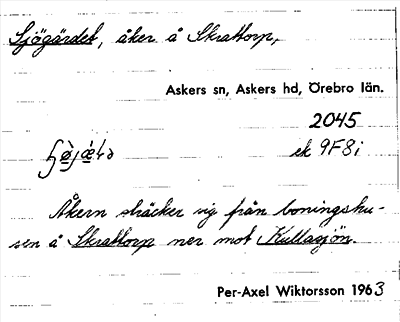 Sjögärdet, åker å Skrattorp,
Askers sn, Askers hd, Örebro län.
2045
ek 9F8i
Åkern sträcker sig från boningshu-
sen å Skrattorp ner mot Kullasjön.
Per-Axel Wiktorsson 1963